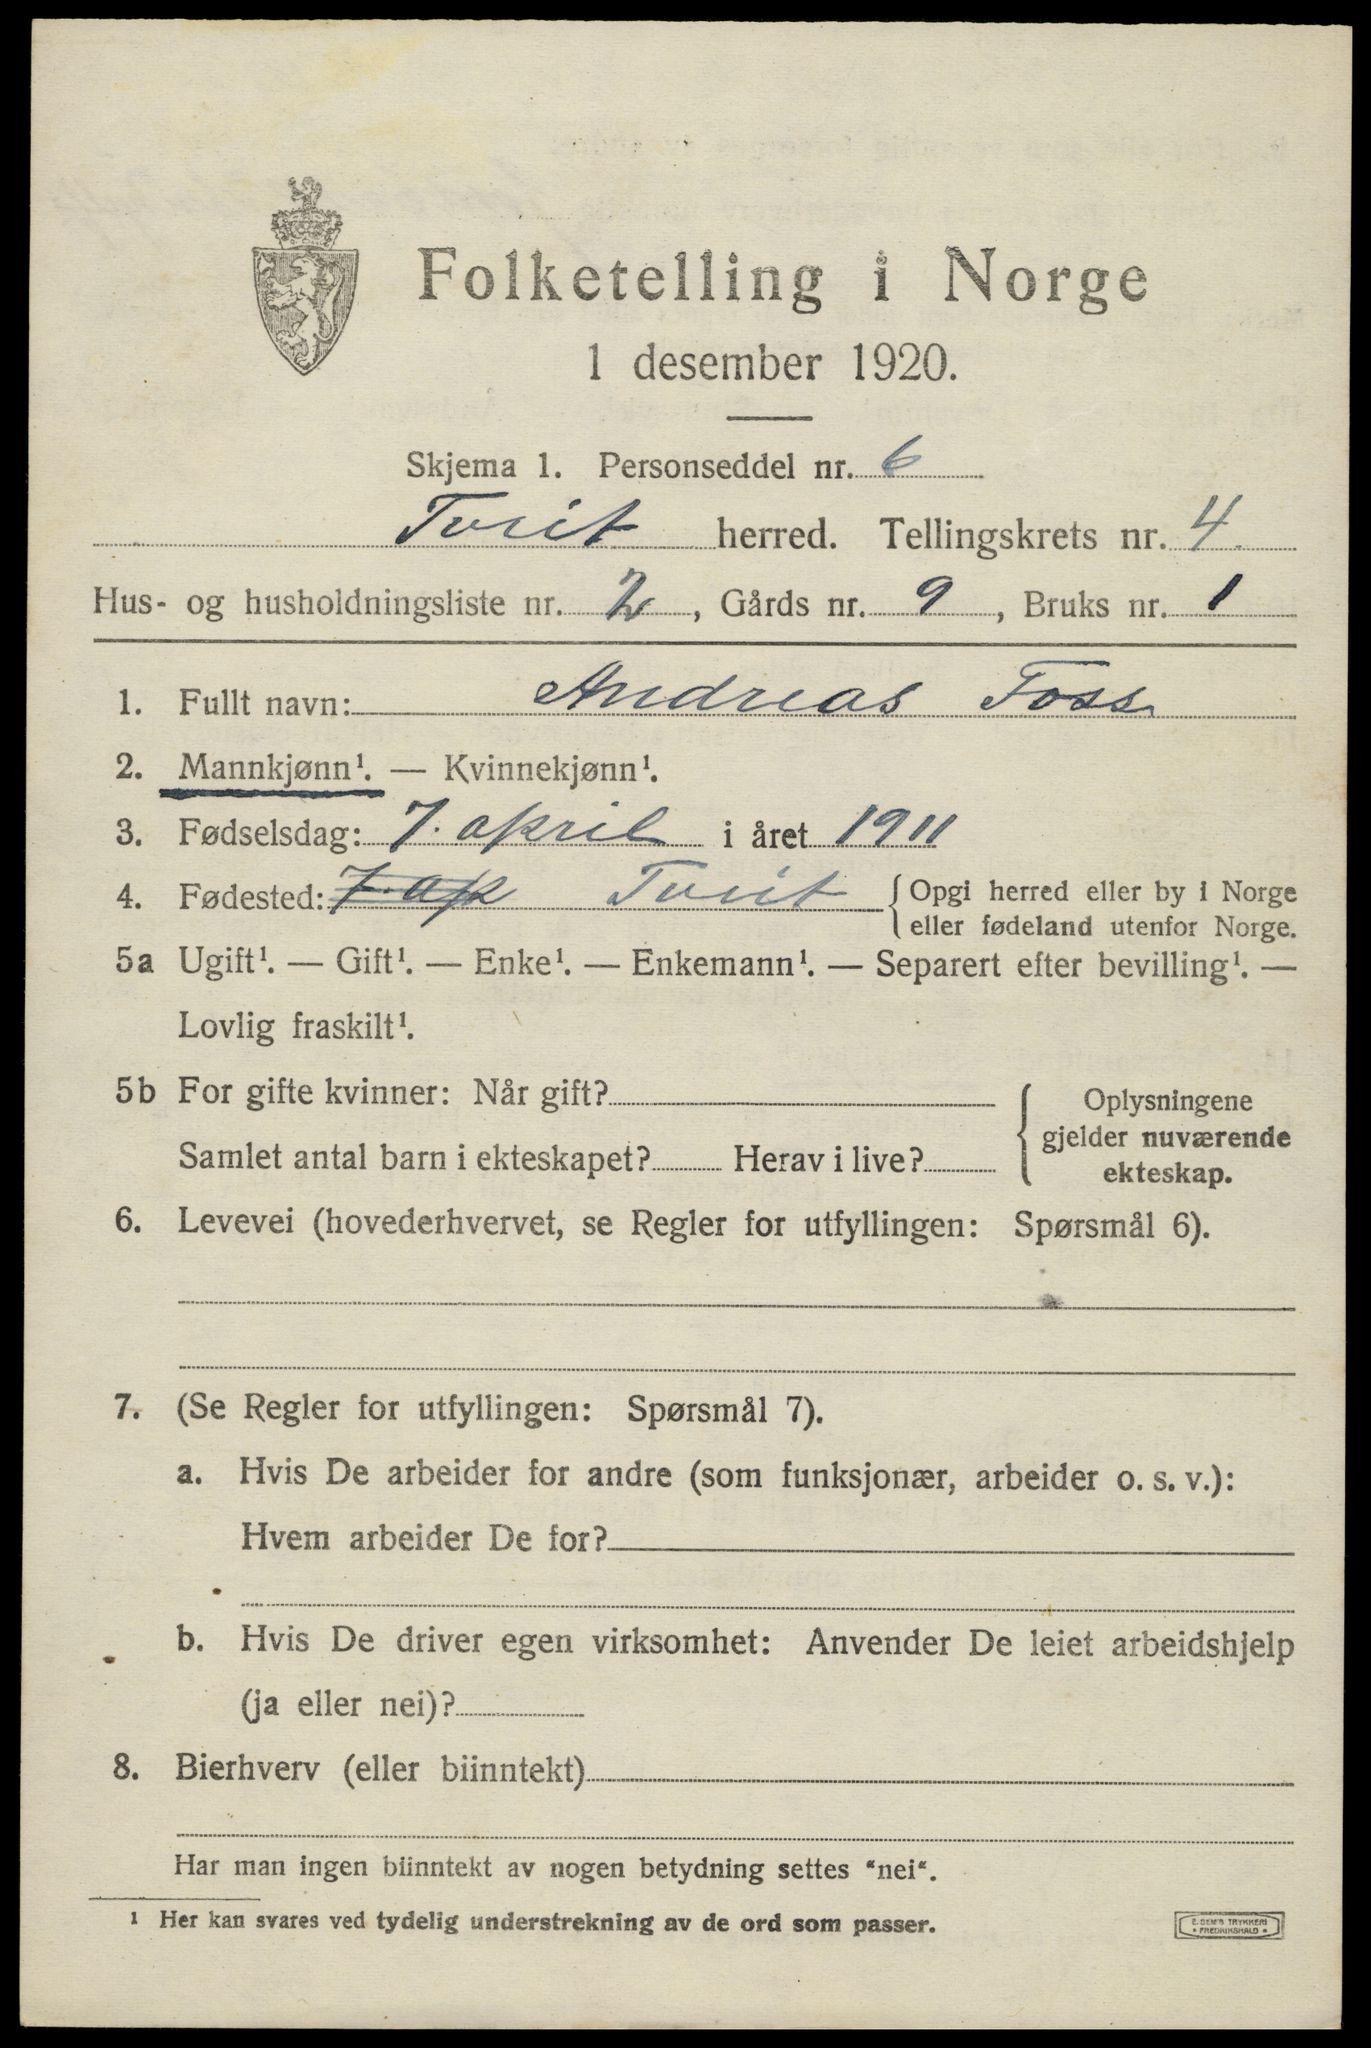 Folketelling i Norge
1 desember 1920.
Skjema 1. Personseddel nr. 6
Tveit herred. Tellingskrets nr. 4.
Hus- og husholdningsliste nr. 2, Gårds nr. 9, Bruks nr. 1
1. Fullt navn: Andreas Foss
2. Mannkjønn¹. — Kvinnekjønn¹.
3. Fødselsdag: 7. april i året 1911
4. Fødested: 7. ap Tveit { Opgi herred eller by i Norge
eller fødeland utenfor Norge.
5a Ugift¹. — Gift¹. — Enke¹. — Enkemann¹. — Separert efter bevilling¹. —
Lovlig fraskilt¹.
5b For gifte kvinner: Når gift?
Samlet antal barn i ekteskapet? Herav i live?
{ Oplysningene
gjelder nuværende
ekteskap.
6. Levevei (hovederhvervet, se Regler for utfyllingen: Spørsmål 6).
7. (Se Regler for utfyllingen: Spørsmål 7).
a. Hvis De arbeider for andre (som funksjonær, arbeider o. s. v.):
Hvem arbeider De for?
b. Hvis De driver egen virksomhet: Anvender De leiet arbeidshjelp
(ja eller nei)?
8. Bierhverv (eller biinntekt)
Har man ingen biinntekt av nogen betydning settes "nei".
¹ Her kan svares ved tydelig understrekning av de ord som passer.
E. SEM'S TRYKKERI
• FREDRIKSHALD •